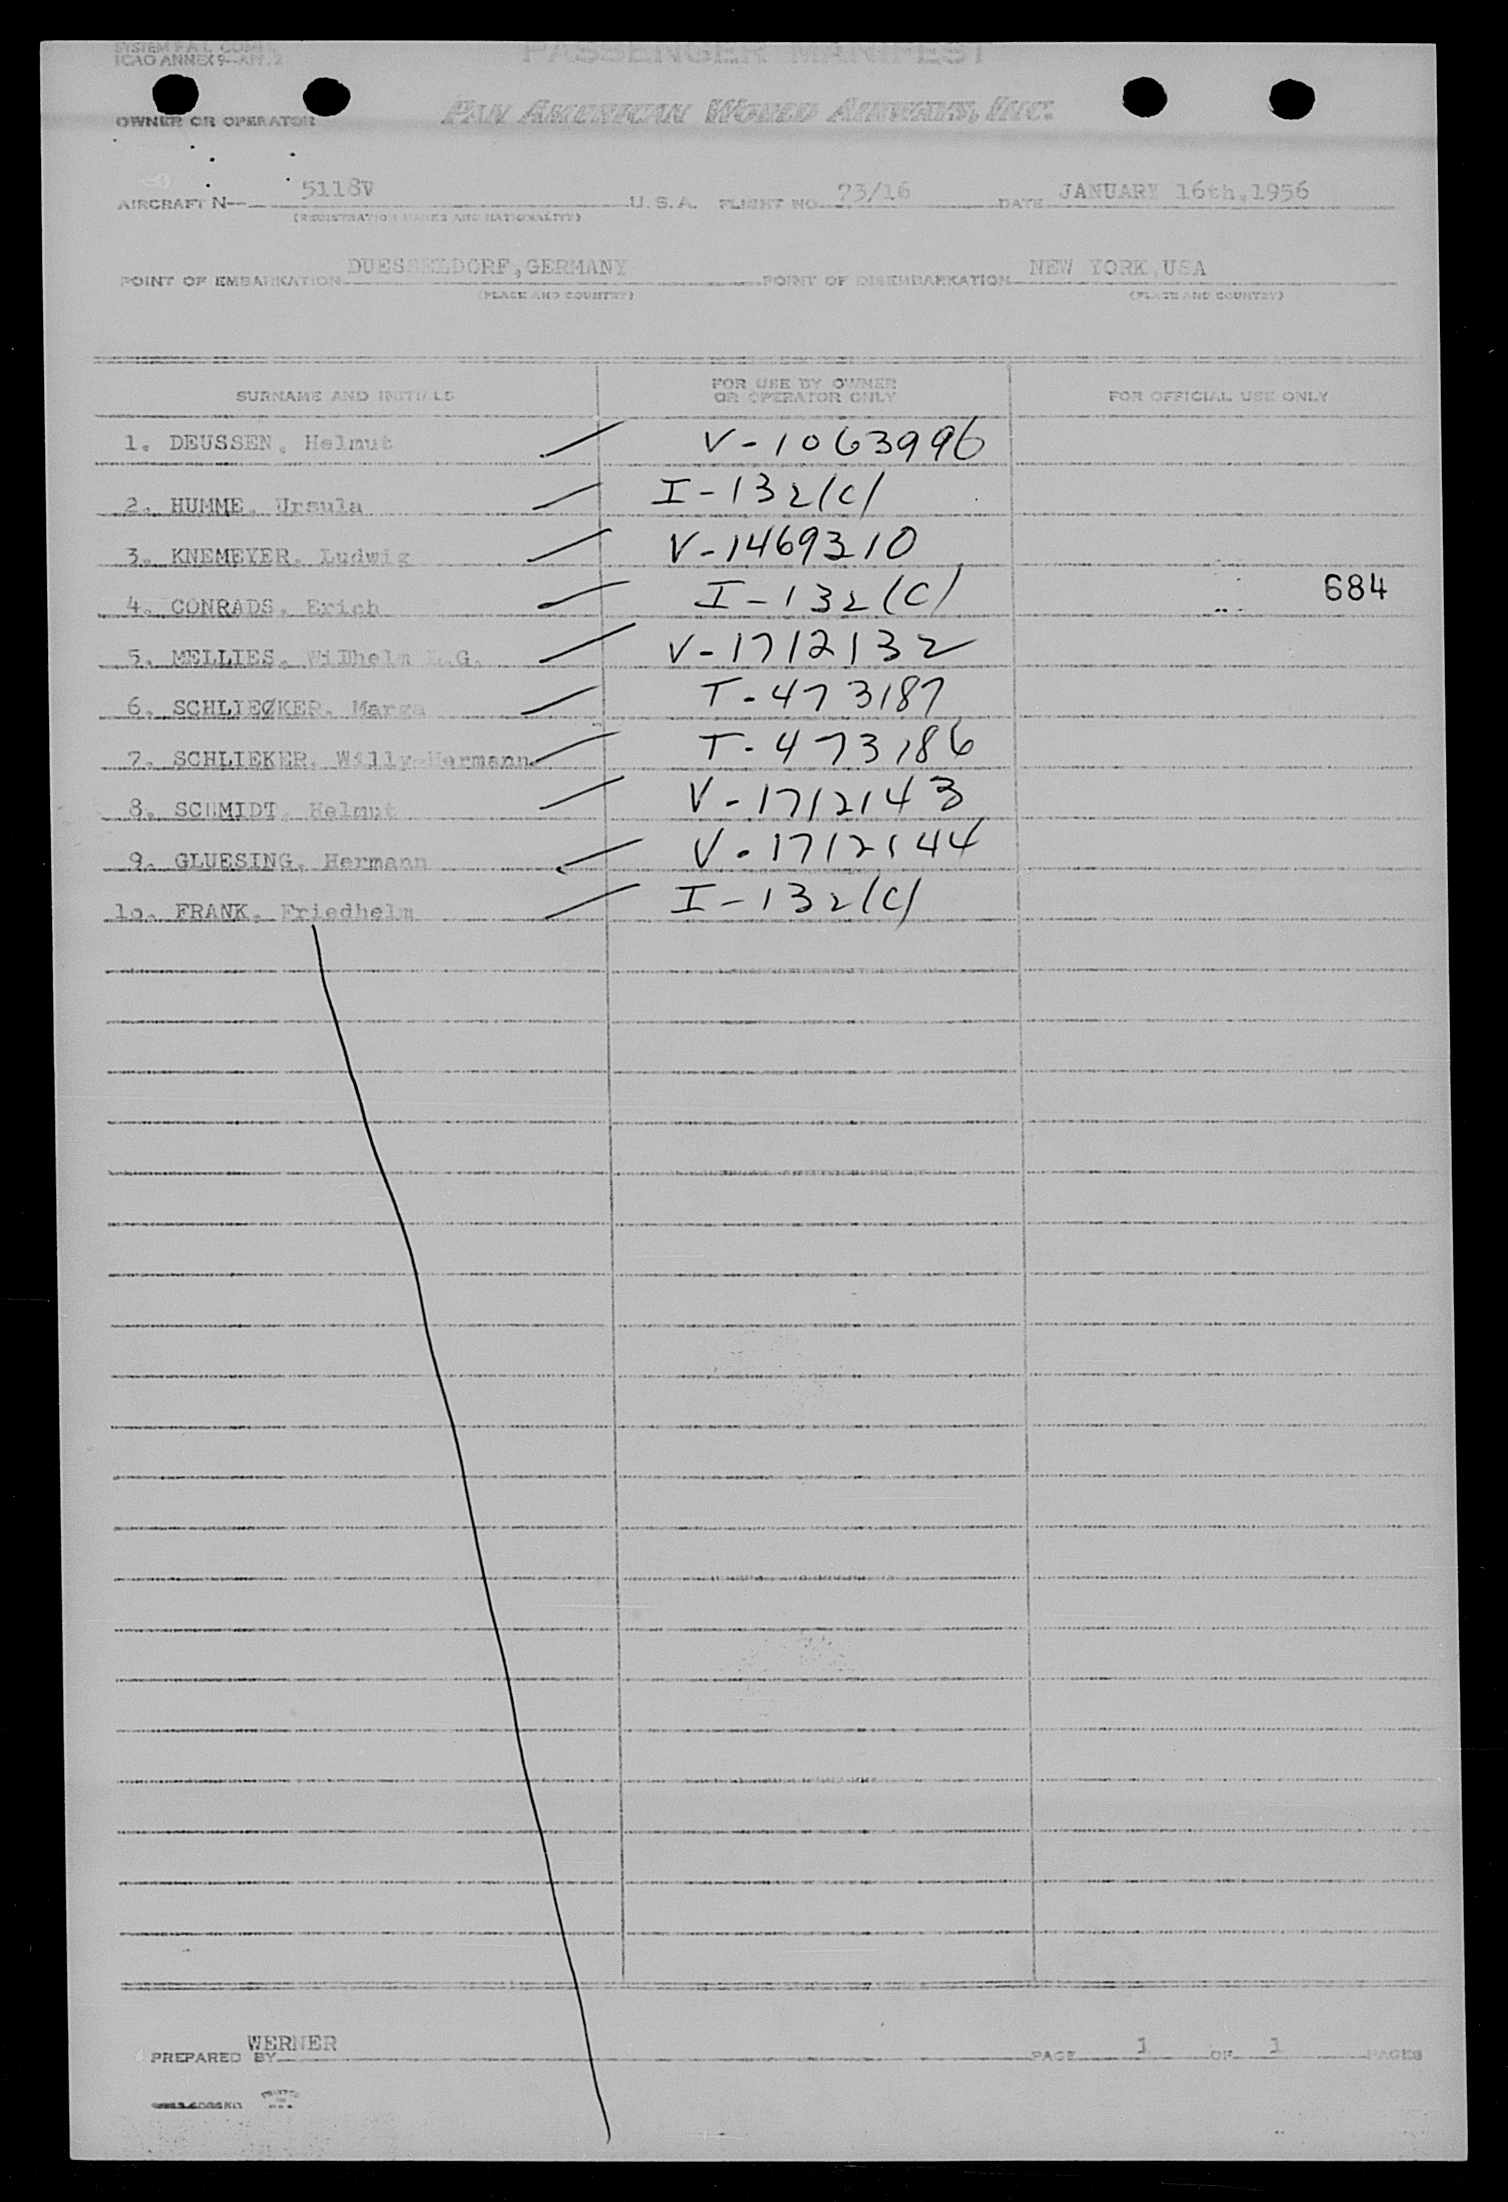 SYSTEM F.A.L. COMM.
ICAO ANNEX 9-APP. 2
PASSENGER MANIFEST
OWNER OR OPERATOR
PAN AMERICAN WORLD AIRWAYS, INC.
AIRCRAFT N- 5118V U.S.A. FLIGHT NO. 73/16 DATE JANUARY 16th,1956
(REGISTRATION MARKS AND NATIONALITY)
POINT OF EMBARKATION DUESSELDORF,GERMANY POINT OF DISEMBARKATION NEW YORK,USA
(PLACE AND COUNTRY) (PLACE AND COUNTRY)
SURNAME AND INITIALS FOR USE BY OWNER OR OPERATOR ONLY FOR OFFICIAL USE ONLY
1. DEUSSEN, Helmut V-1063996
2. HUMME, Ursula I-132(C)
3. KNEMEYER, Ludwig V-1469310
4. CONRADS, Erich I-132(C) 684
5. MELLIES, Wilhelm G. V-1712132
6. SCHLIECKER, Marga T-473187
7. SCHLIEKER, Willy-Hermann T-473186
8. SCHMIDT, Helmut V-1712143
9. GLUESING, Hermann V-1712144
1o. FRANK, Friedhelm I-132(C)
PREPARED BY WERNER PAGE 1 OF 1 PAGES